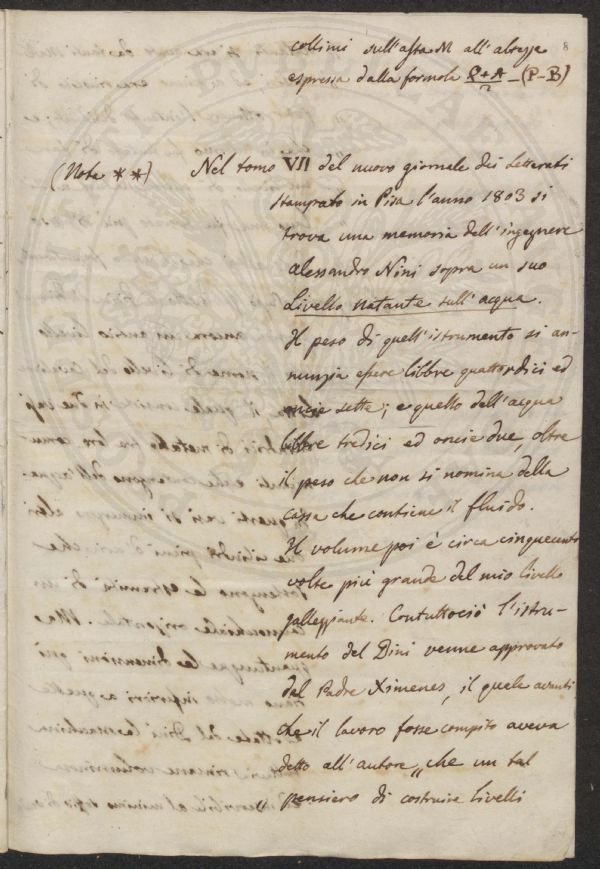 8
collimi sull'asta M all'altezza
espressa dalla formola Q+A/2 – (P–B)
(Nota **) Nel tomo VII del nuovo giornale dei Letterati
stampato in Pisa l'anno 1803 si
trova una memoria dell'ingegnere
Alessandro Nini sopra un suo
Livello natante sull'acqua.
Il peso di quell'istrumento si an-
nunzia essere libbre quattordici ed
oncie sette; e quello dell'acqua
libbre tredici ed oncie due, oltre
il peso che non si nomina della
cassa che contiene il fluido.
Il volume poi è circa cinquecento
volte più grande del mio livello
galleggiante. Contuttociò l'istru-
mento del Dini venne approvato
dal Padre Ximenes, il quale avanti
che il lavoro fosse compito aveva
detto all'autore „che un tal
„pensiero di costruire livelli